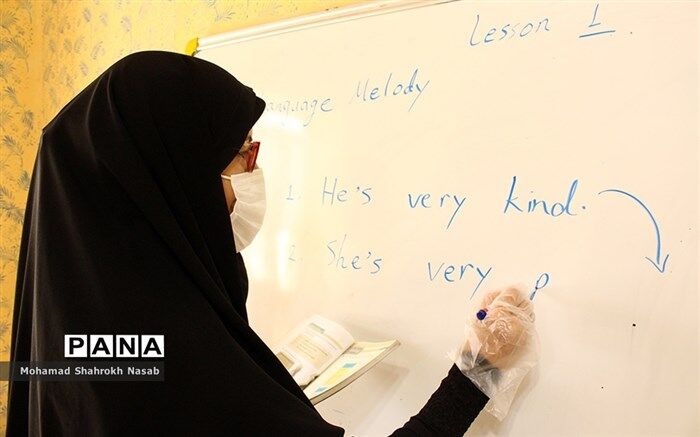 Lesson 1.
Language Melody
1. He's very kind.
2. She's very p
PANA
Mohamad Shahrokh Nasab